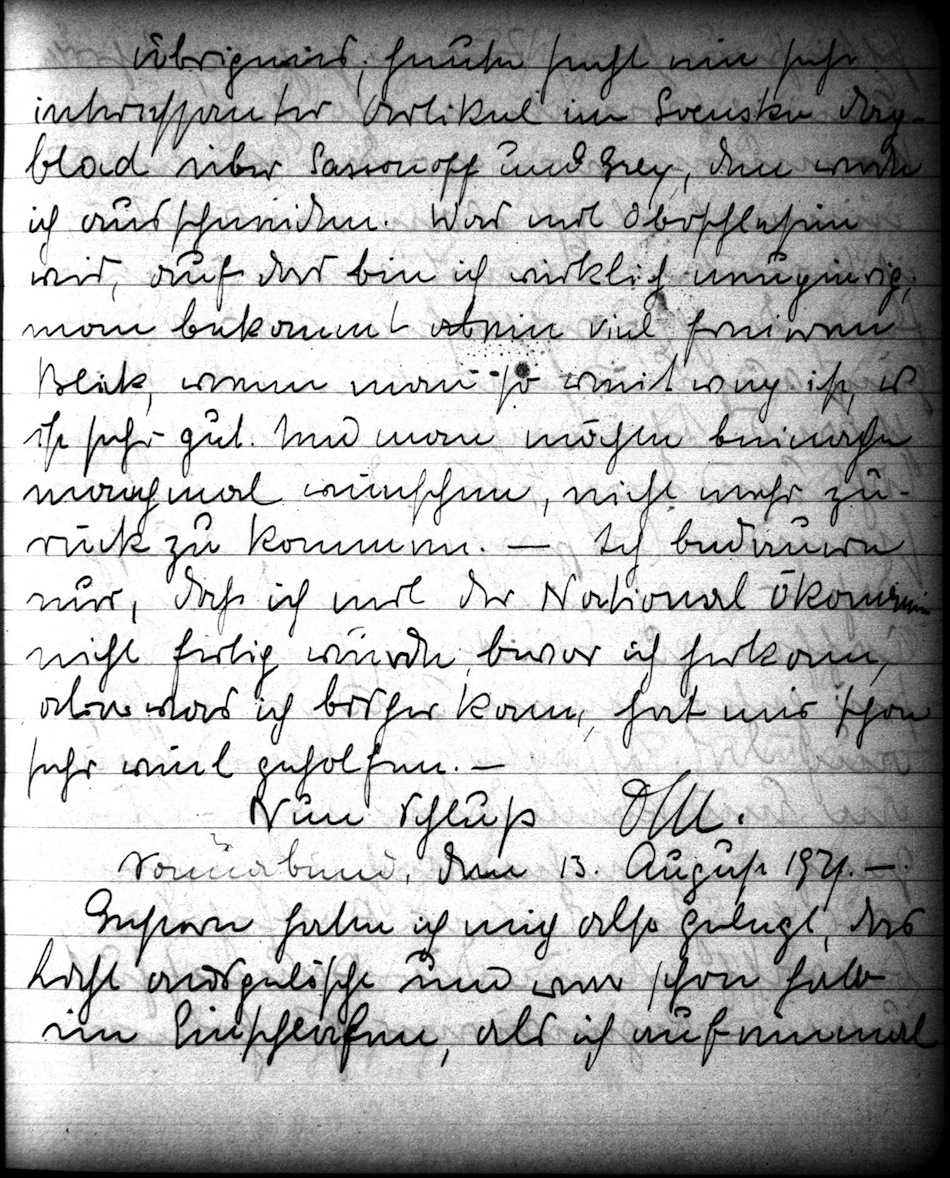 Übrigens, heute steht ein sehr
interessanter Artikel im Svenska Dag-
blad über Sassonoff und Grey, den werde
ich ausschneiden. Was mit Oberschlesien
wird, auf das bin ich wirklich neugierig;
man bekommt eben viel freieren
Blick, wenn man so weit weg ist, es
ist sehr gut. Und man möchte beinahe
manchmal wünschen, nicht mehr zu-
rück zu kommen. — Ich bedauere
nur, dass ich mit der National Ökonomie
nicht fertig wurde, bevor ich herkam,
aber was ich bisher kann, hat mir schon
sehr viel geholfen. —
Nun Schluß
Sonnabend, den 13. August 1921. —.
Gestern hatte ich mich also gelegt, das
Licht ausgelöscht und war schon halb
im Einschlafen, als ich auf einmal